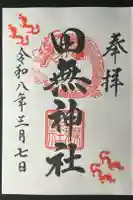 奉拝
田無神社
令和八年三月七日